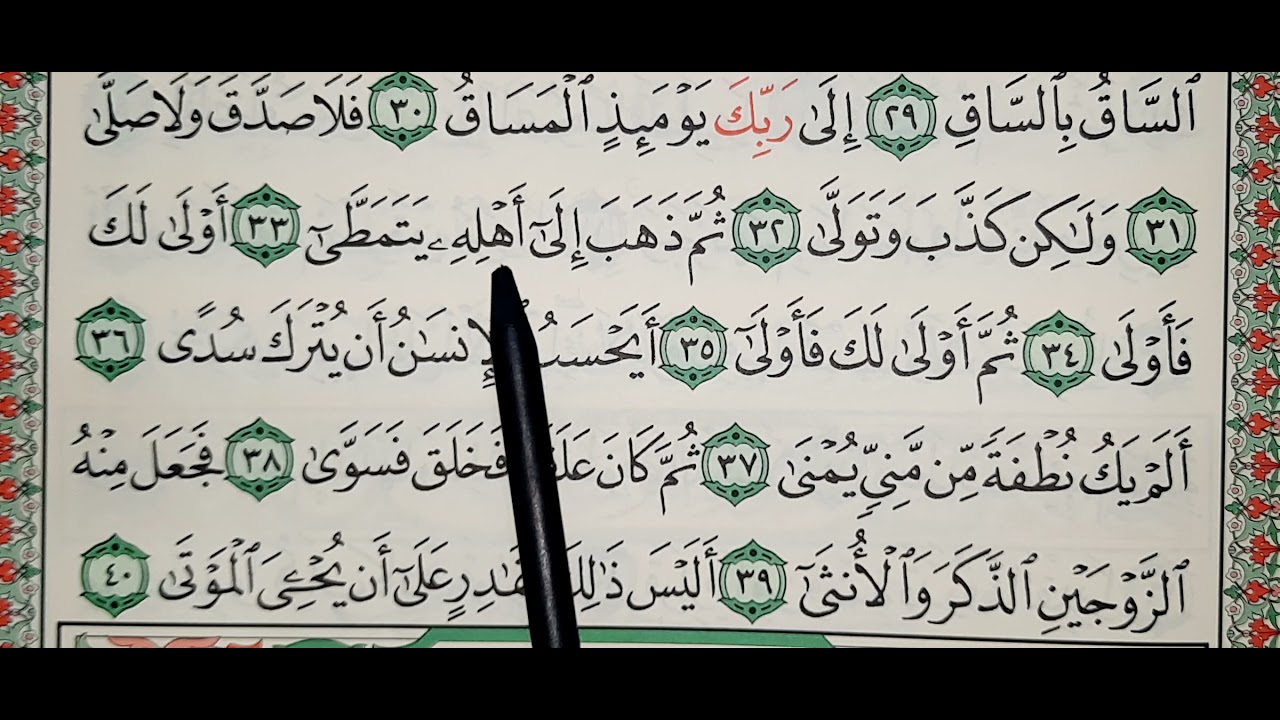 ٱلسَّاقُ بِٱلسَّاقِ ٢٩ إِلَىٰ رَبِّكَ يَوْمَئِذٍ ٱلْمَسَاقُ ٣٠ فَلَا صَدَّقَ وَلَا صَلَّىٰ
٣١ وَلَـٰكِن كَذَّبَ وَتَوَلَّىٰ ٣٢ ثُمَّ ذَهَبَ إِلَىٰٓ أَهْلِهِۦ يَتَمَطَّىٰٓ ٣٣ أَوْلَىٰ لَكَ
فَأَوْلَىٰ ٣٤ ثُمَّ أَوْلَىٰ لَكَ فَأَوْلَىٰٓ ٣٥ أَيَحْسَبُ ٱلْإِنسَـٰنُ أَن يُتْرَكَ سُدًى ٣٦
أَلَمْ يَكُ نُطْفَةً مِّن مَّنِيٍّ يُمْنَىٰ ٣٧ ثُمَّ كَانَ عَلَقَةً فَخَلَقَ فَسَوَّىٰ ٣٨ فَجَعَلَ مِنْهُ
ٱلزَّوْجَيْنِ ٱلذَّكَرَ وَٱلْأُنثَىٰٓ ٣٩ أَلَيْسَ ذَٰلِكَ بِقَـٰدِرٍ عَلَىٰٓ أَن يُحْـِۧىَ ٱلْمَوْتَىٰ ٤٠